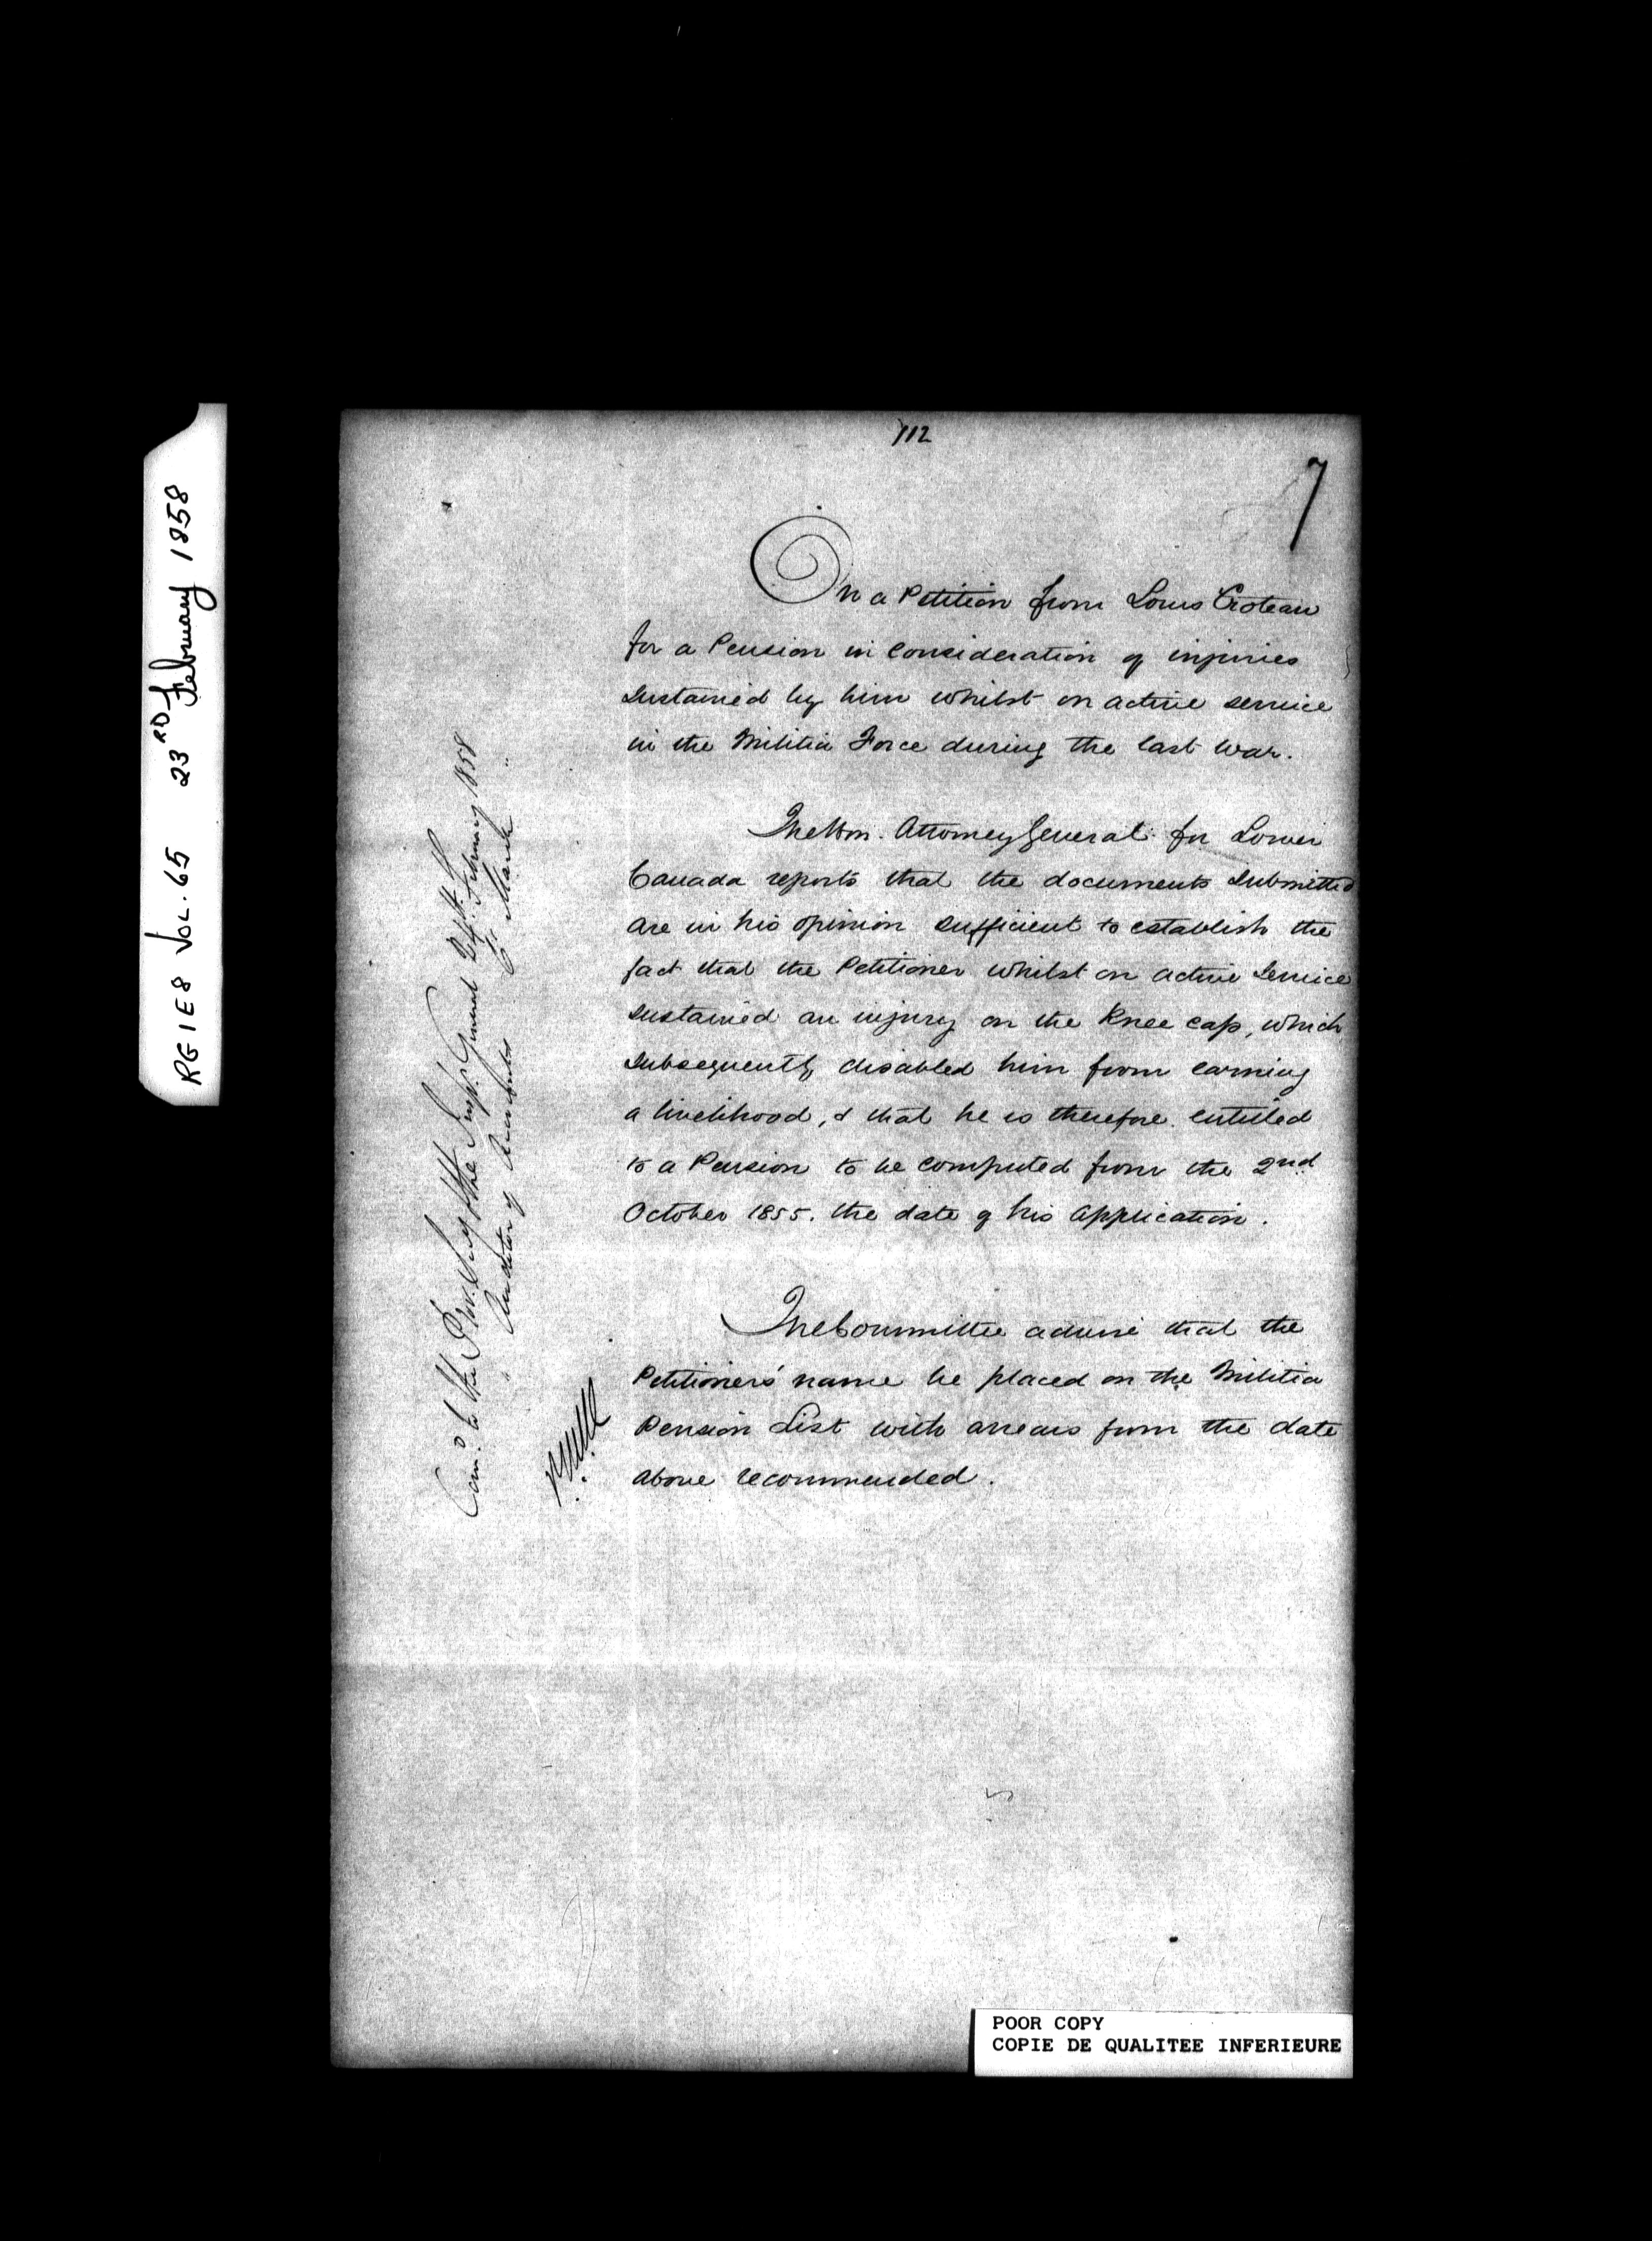 112
7
On a Petition from Louis Croteau
for a Pension in consideration of injuries
sustained by him whilst on active service
in the Militia Force during the last War.
The Hon. Attorney General for Lower
Canada reports that the documents submitted
are in his opinion sufficient to establish the
fact that the Petitioner whilst on active service
sustained an injury on the Knee cap, which
subsequently disabled him from earning
a livelihood, & that he is therefore entitled
to a Pension to be computed from the 2nd
October 1855. the date of his application.
The Committee advise that the
Petitioners' name be placed on the Militia
Pension List with arrears from the date
above recommended.
to the Prov. Insp. General Dept. February 1858
" Auditor of March "
RG 1 E 8 VOL. 65 23RD February 1858
POOR COPY
COPIE DE QUALITEE INFERIEURE